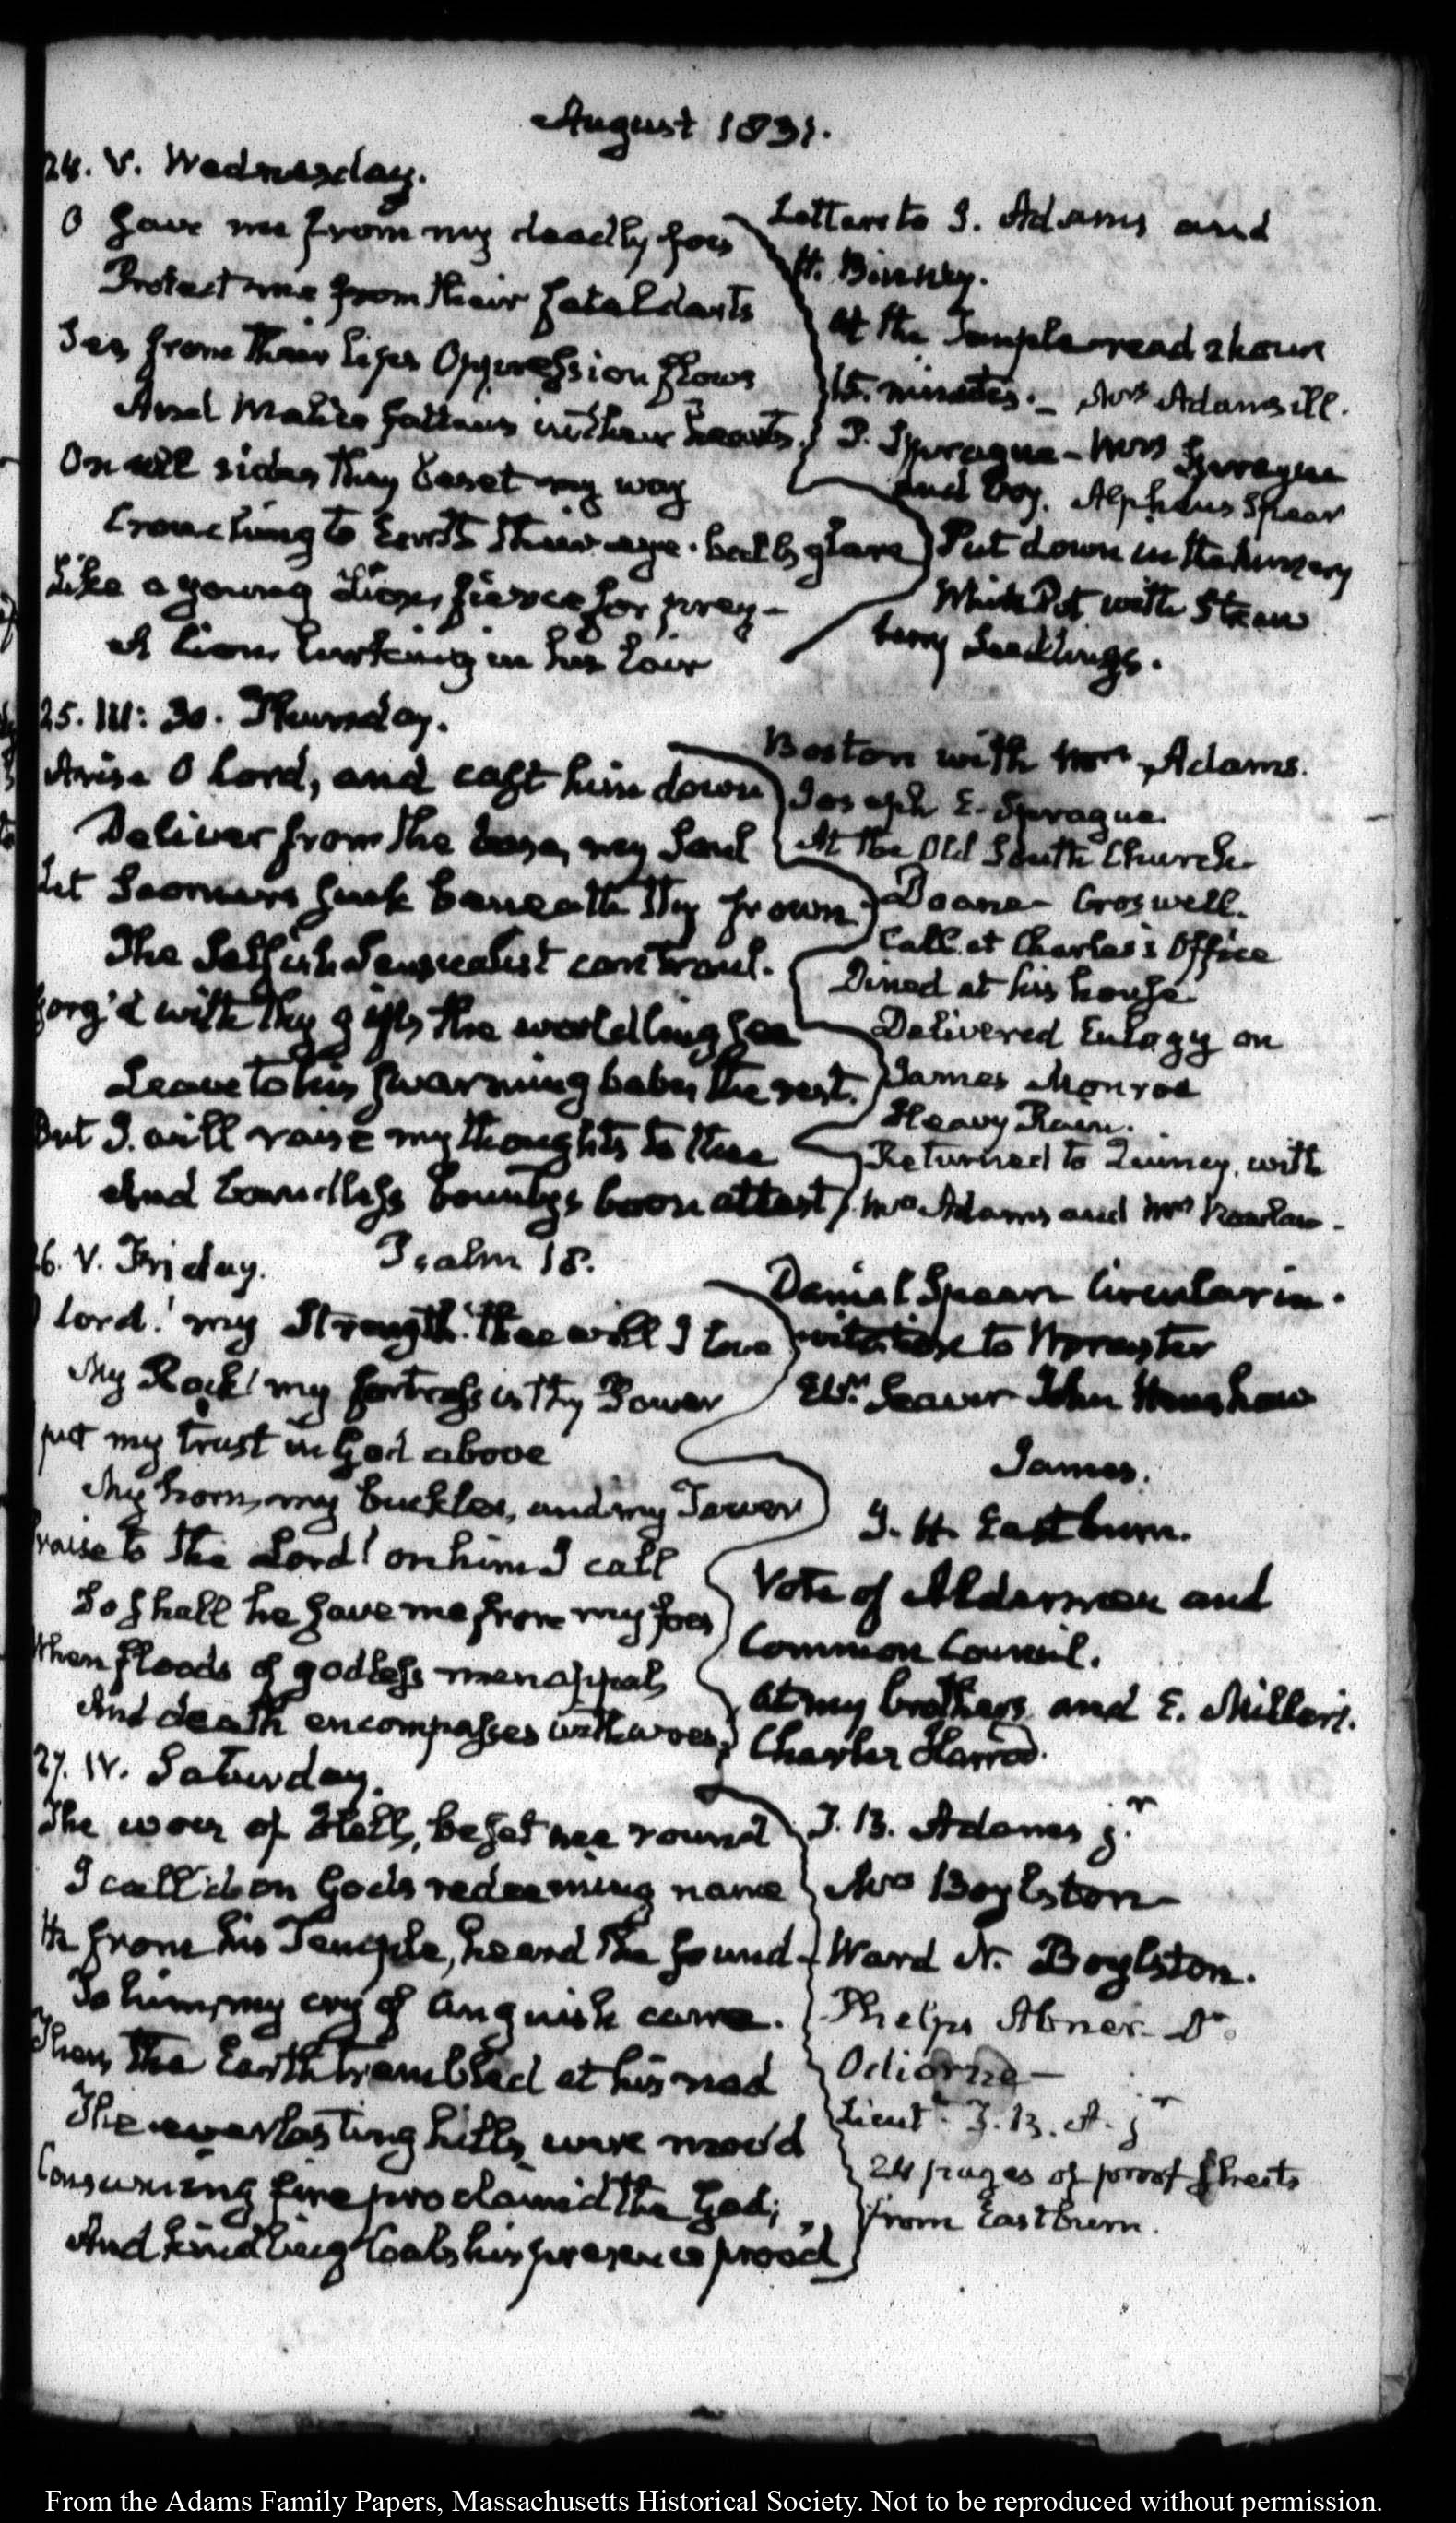 August 1831.
24. V. Wednesday.
O save me from my deadly foes
Protect me from their fatal darts
See, from their lips Oppression flows
And Malice fattens in their hearts.
On all sides they beset my way
Crouching to Earth their eye-balls glare
Like a young Lion, fierce for prey—
A Lion, lurking in his lair
Letters to J. Adams and
H. Binney.
At the Temple read 2 hours
15. minutes.— Mrs Adams ill.
P. Sprague— Mrs Sprague
and boy. Alpheus Spear
Put down in the Nursery
White Pot with Straw
berry Seedlings.
25. III: 30. Thursday.
Arise O Lord, and cast him down
Deliver from the base, my Soul
Let Scorners sink beneath thy frown
The Selfish Sensualist controul.
Gorg'd with thy gifts the worldling see
Leave to his swarming babes the rest.
But I will raise my thoughts to thee
And boundless bounty's boon attest
Boston with Mrs Adams.
Joseph E. Sprague.
At the Old South Church
Doane— Croswell.
Call at Charles's Office
Dined at his house
Delivered Eulogy on
James Monroe
Heavy Rain.
Returned to Quincy, with
Mrs Adams and Mrs
26. V. Friday. Psalm 18.
O Lord! my Strength! thee will I love
My Rock! my fortress is thy Power
put my trust in God above
My horn, my buckler, and my Tower
Praise to the Lord! on him I call
So shall he save me from my foes
When floods of godless men appal,
And death encompasses with woes.
Daniel Spear Circular in-
vitation to Worcester
Ebr. Seaver John Henshaw
James.
J. H. Eastburn.
Vote of Aldermen and
Common Council.
At my brothers and E. Miller's.
Charles Harrod.
27. IV. Saturday.
The woes of Hell, beset me round
I call'd on Gods redeeming name
He from his Temple, heard the sound
To him, my cry of anguish came.
Then, the Earth trembled at his nod
The everlasting hills, were mov'd
Consuming fire proclaim'd the God;
And kindling Coals his presence prov'd
T. B. Adams jr.
Mrs Boylston—
Ward N. Boylston.
Phelps Abner— Dr.
Odiorne—
Lieutt. T. B. A. jr
24 pages of proof sheets
from Eastburn.
From the Adams Family Papers, Massachusetts Historical Society. Not to be reproduced without permission.